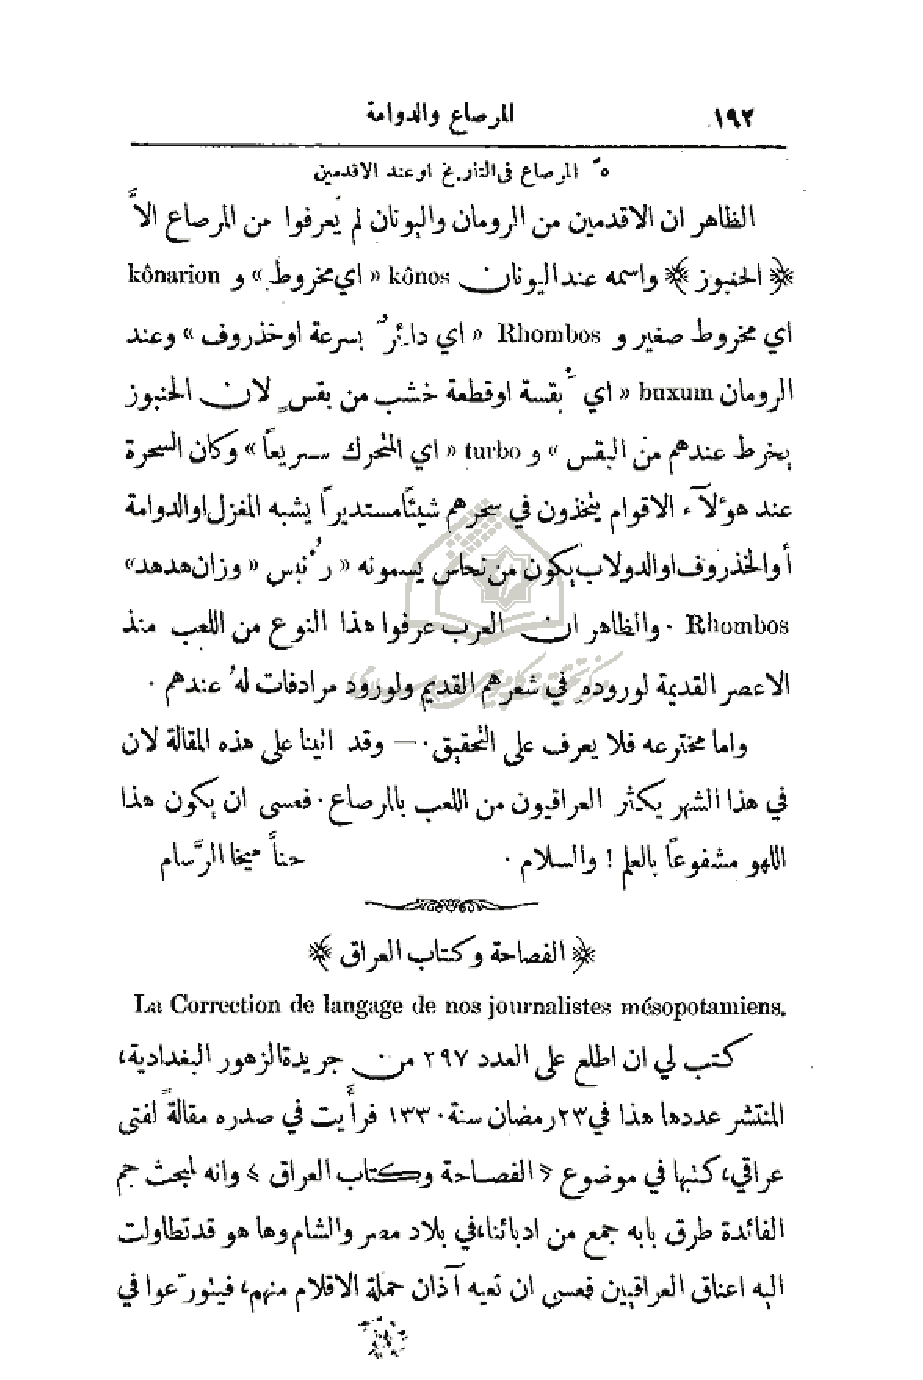 ١٩٢ المرصاع والدوامة
٥ً المرصاع في التاريخ او عند الاقدمين
الظاهر ان الاقدمين من الرومان واليونان لم يَعرفوا من المرصاع الاَّ
﴿ الحنبوز ﴾ واسمه عند اليونان kônos « اي مخروط » و kônarion
اي مخروط صغير و Rhombos « اي دائرٌ بسرعة او خذروف » وعند
الرومان buxum « اي بُقسة او قطعة خشب من بقسٍ لان الحنبوز
يخرط عندهم من البقس » و turbo « اي المتحرك سريعاً » وكان السحرة
عند هؤلآء الاقوام يتخذون في سحرهم شيئاً مستديراً يشبه المغزل او الدوامة
أو الخذروف او الدولاب يكون من نحاس يسمونه « رُنبس « وزان هدهد»
Rhombos . والظاهر ان العرب عرفوا هذا النوع من اللعب منذ
الاعصر القديمة لوروده في شعرهم القديم ولورود مرادفات لهُ عندهم .
واما مخترعه فلا يعرف على التحقيق . — وقد اتينا على هذه المقالة لان
في هذا الشهر يكثر العراقيون من اللعب بالمرصاع . فعسى ان يكون هذا
اللهو مشفوعاً بالعلم ! والسلام . حناً ميخا الرَّسام
﴿ الفصاحة وكتاب العراق ﴾
La Correction de langage de nos journalistes mésopotamiens.
كتب لي ان اطلع على العدد ٢٩٧ من جريدة الزهور البغدادية،
المنتشر عددها هذا في ٢٣ رمضان سنة ١٣٣٠ فرأيت في صدره مقالةً لفتى
عراقي، كتبها في موضوع « الفصاحة وكتاب العراق » وانه لمبحث جم
الفائدة طرق بابه جمع من ادبائنا، في بلاد مصر والشام وها هو قد تطاولت
اليه اعناق العراقيين فعسى ان تعيه آذان حملة الاقلام منهم، فيتورّعوا في